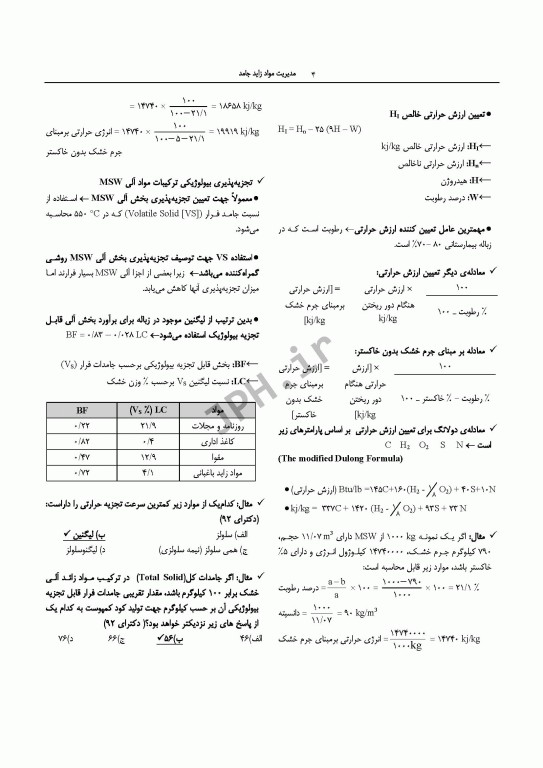 ۳ مدیریت مواد زاید جامد
● تعیین ارزش حرارتی خالص H₁
H₁ = Hᵤ – ۲۵ (۹H – W)
←H₁: ارزش حرارتی خالص kj/kg
←Hᵤ: ارزش حرارتی ناخالص
←H: هیدروژن
←W: درصد رطوبت
● مهمترین عامل تعیین کننده ارزش حرارتی← رطوبت است که در
زباله بیمارستانی ۸۰ –۷۰٪ است.
✓ معادله‌ی دیگر تعیین ارزش حرارتی:
۱۰۰ × ارزش حرارتی = [ارزش حرارتی
٪ رطوبت – ۱۰۰ هنگام دور ریختن برمبنای جرم خشک
kj/kg kj/kg]
✓ معادله بر مبنای جرم خشک بدون خاکستر:
۱۰۰ × [ارزش = [ارزش حرارتی
حرارتی هنگام برمبنای جرم
٪ رطوبت – ٪ خاکستر – ۱۰۰ دور ریختن خشک بدون
kj/kg] خاکستر]
✓ معادله‌ی دولانگ برای تعیین ارزش حرارتی بر اساس پارامترهای زیر
است ← C H₂ O₂ S N
(The modified Dulong Formula)
● (ارزش حرارتی) Btu/lb =۱۴۵C+۶۱۰(H₂ - ۱/۸ O₂) + ۴۰S+۱۰N
● kj/kg = ۳۳۷C + ۱۴۲۰ (H₂ - ۱/۸ O₂) + ۹۳S + ۲۳ N
✓ مثال: اگر یک نمونه ۱۰۰۰ kg از MSW دارای ۱۱/۰۷ m³ حجم،
۷۹۰ کیلوگرم جرم خشک، ۱۴۷۴۰۰۰۰ کیلوژول انرژی و دارای ۵٪
خاکستر باشد، موارد زیر قابل محاسبه است:
درصد رطوبت = a–b / a × ۱۰۰ = ۱۰۰۰–۷۹۰ / ۱۰۰۰ × ۱۰۰ = ۲۱/۱ ٪
دانسیته = ۱۰۰۰ / ۱۱/۰۷ = ۹۰ kg/m³
انرژی حرارتی برمبنای جرم خشک = ۱۴۷۴۰۰۰۰ / ۱۰۰۰kg = ۱۴۷۴۰ kj/kg
= ۱۴۷۴۰ × ۱۰۰ / ۱۰۰–۲۱/۱ = ۱۸۶۵۸ kj/kg
انرژی حرارتی برمبنای = ۱۴۷۴۰ × ۱۰۰ / ۱۰۰–۵–۲۱/۱ = ۱۹۹۱۹ kj/kg
جرم خشک بدون خاکستر
✓ تجزیه‌پذیری بیولوژیکی ترکیبات مواد آلی MSW
● معمولاً جهت تعیین تجزیه‌پذیری بخش آلی MSW ← استفاده از
نسبت جامد فرار (Volatile Solid [VS]) که در ۵۵۰ °C محاسبه
می‌شود.
● استفاده VS جهت توصیف تجزیه‌پذیری بخش آلی MSW روشی
گمراه‌کننده می‌باشد← زیرا بعضی از اجزا آلی MSW بسیار فرارند اما
میزان تجزیه‌پذیری آنها کاهش می‌یابد.
● بدین ترتیب از لیگنین موجود در زباله برای برآورد بخش آلی قابل
تجزیه بیولوژیک استفاده می‌شود← BF = ۰/۸۳ – ۰/۰۲۸ LC
←BF: بخش قابل تجزیه بیولوژیکی برحسب جامدات فرار (Vs)
←LC: نسبت لیگنین Vs برحسب ٪ وزن خشک
مواد (Vs ٪) LC BF
روزنامه و مجلات ۲۱/۹ ۰/۲۲
کاغذ اداری ۰/۴ ۰/۸۲
مقوا ۱۲/۹ ۰/۴۷
مواد زاید باغبانی ۴/۱ ۰/۷۲
✓ مثال: کدام‌یک از موارد زیر کمترین سرعت تجزیه حرارتی را داراست:
(دکترای ۹۲)
الف) سلولز ب) لیگنین ✓
ج) همی سلولز (نیمه سلولزی) د) لیگنوسلولز
✓ مثال: اگر جامدات کل(Total Solid) در ترکیب مواد زائد آلی
خشک برابر ۱۰۰ کیلوگرم باشد، مقدار تقریبی جامدات فرار قابل تجزیه
بیولوژیکی آن بر حسب کیلوگرم جهت تولید کود کمپوست به کدام یک
از پاسخ های زیر نزدیکتر خواهد بود؟( دکترای ۹۲)
الف)۴۶ ب)۵۶✓ ج)۶۶ د)۷۶
JPH.ir